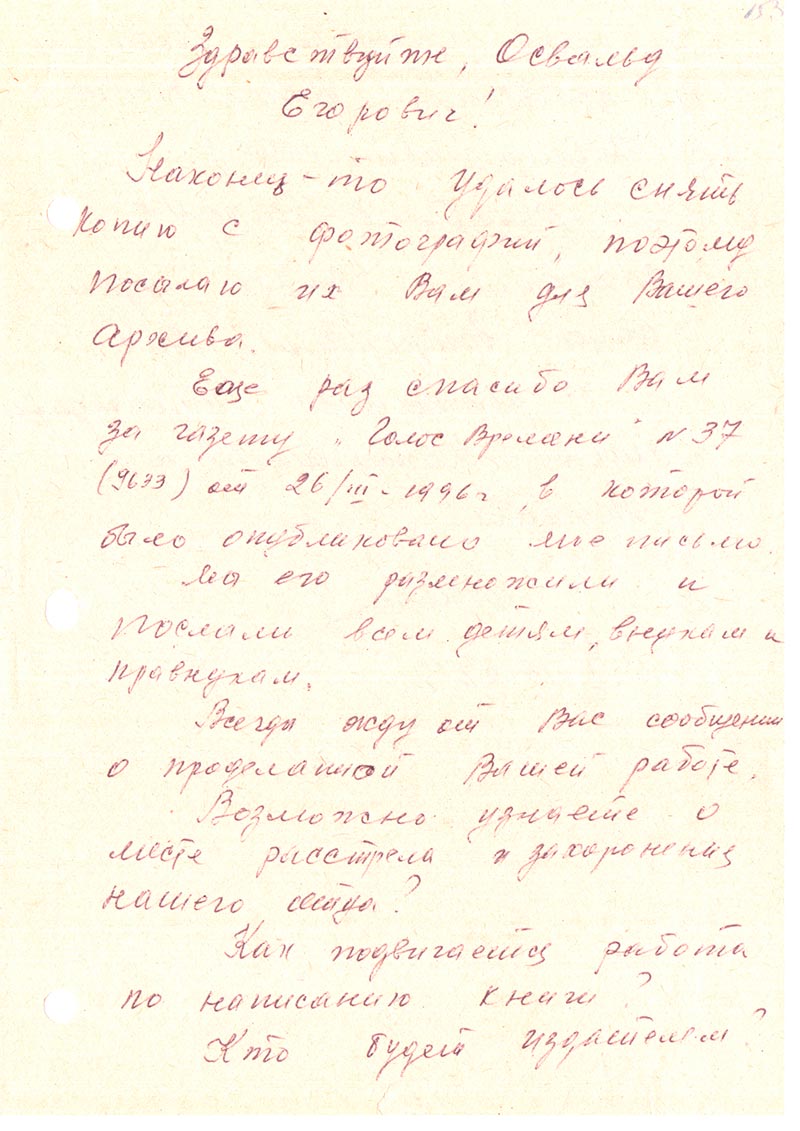 153
Здравствуйте, Освальд
Егорович!
Наконец-то удалось снять
копию с фотографий, поэтому
посылаю их Вам для Вашего
Архива.
Еще раз спасибо Вам
за газету „Голос Времени" N 37
(9633) от 26/III-1996 г, в которой
было опубликовано мое письмо.
Мы его размножили и
послали всем детям, внукам и
правнукам.
Всегда жду от Вас сообщений
о проделанной Вашей работе.
Возможно узнаете о
месте расстрела и захоронения
нашего отца?
Как подвигается работа
по написанию книги?
Кто будет издателем?